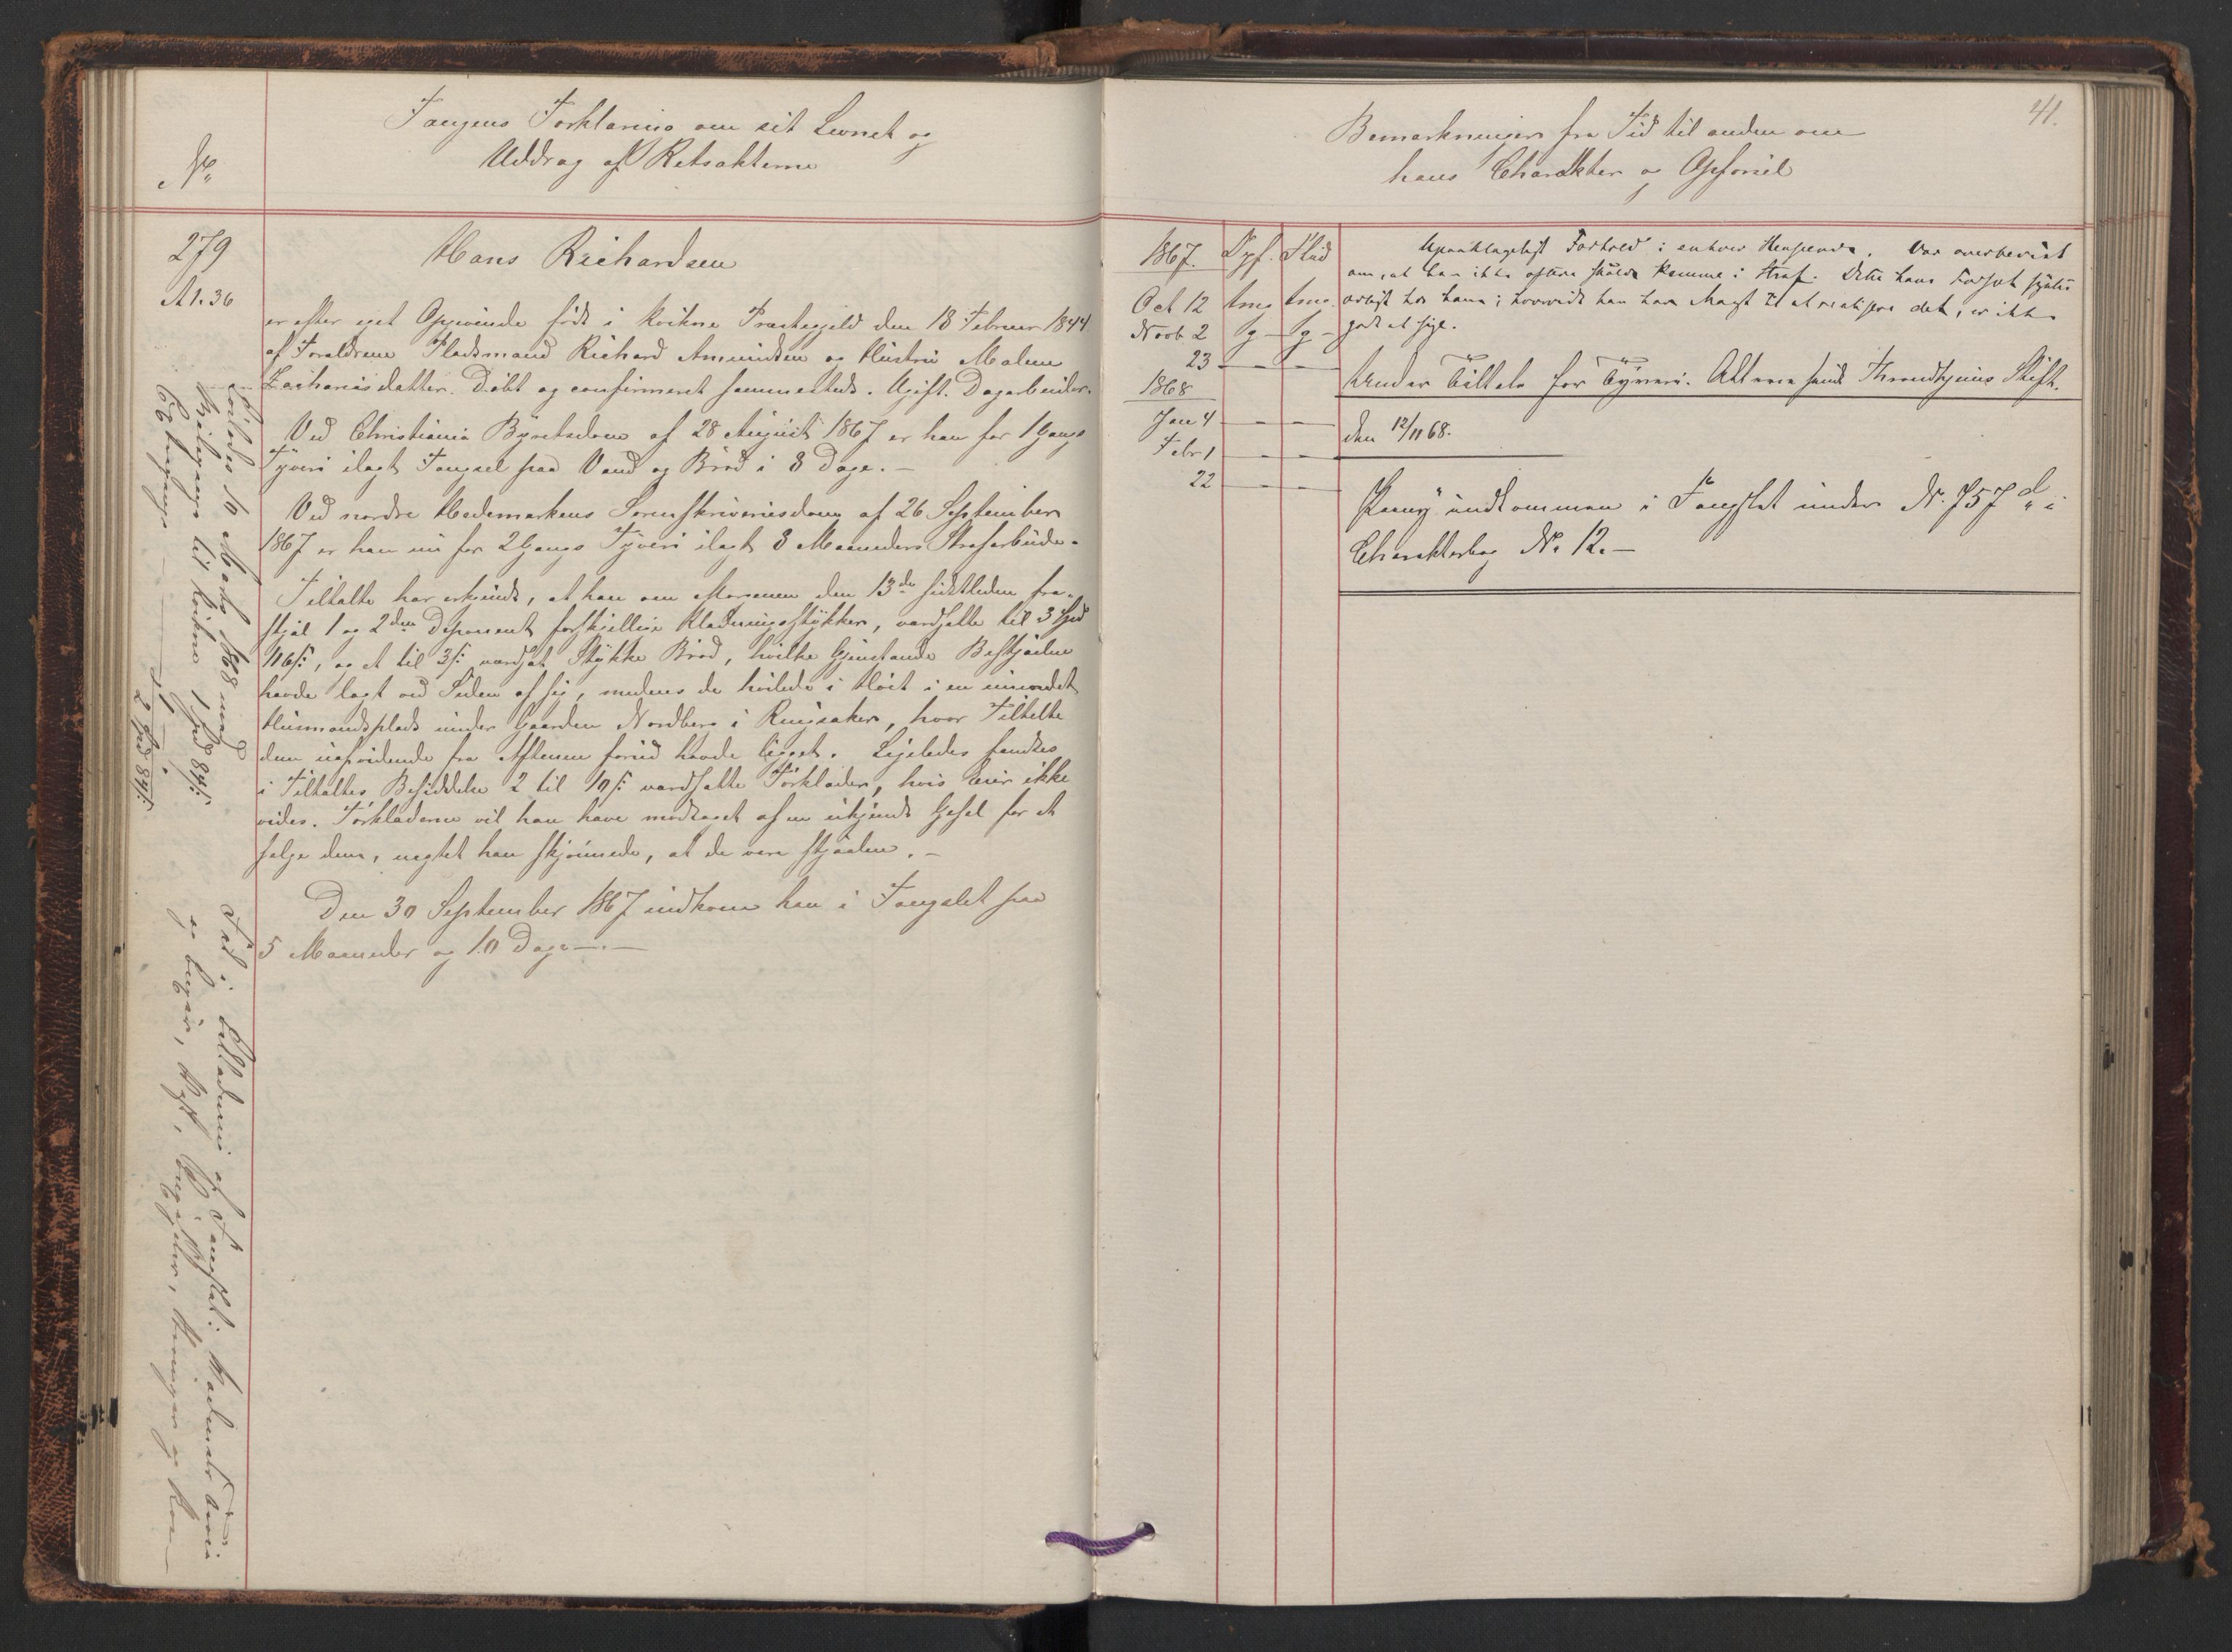 No
Fangens Forklaring om sit Levnet og
Uddrag af Retsakterne
279
A1.36
Hans Richardsen
er efter eget Opgivende født i Kvikne Præstegjeld den 18 Februar 1844
af Forældrene Pladsmand Richard Amundsen og Hustru Malene
Zachariasdatter. Døbt og confirmeret sammesteds. Ugift. Dagarbeider.
Ved Christiania Byretsdom af 28 August 1867 er han for 1 Gangs
Tyveri ilagt Fængsel paa Vand og Brød i 8 Dage. —
Ved nordre Hedemarkens Sorenskriveriesdom af 26 September
1867 er han nu for 2 Gangs Tyveri ilagt Maaneders Strafarbeide.
Tiltalte har erkjendt, at han om Morgenen den 13de sidstleden fra-
stjal 1 og 2den Deponent forskjellige Klædningsstykker, værdsatte til 3 Spd
116 s:, og et til 3 s: værdsat Stykke Brød, hvilke Gjenstande Bestjaalne
havde lagt ved Siden af sig, medens de hvilede i Høit i en
Huusmandsplads under Gaarden Nordberg i Ringsaker, hvor Tiltalte
dem uafvidende fra Aftenen forud havde ligget. Ligeledes fandtes
i Tiltaltes Besiddelse 2 til 10 s: værdsatte Forklæder, hvis Eier ikke
vides. Forklæderne vil han have modtaget af en ukjendt Gesel for at
sælge dem, uagtet han skjønnede, at de vare stjaalne. —
Den 30 September 1867 indkom han i Fængslet paa
5 Maaneder og 10 Dage —. —
Løslades 10 Marts 1868 med
til Kvikne 1 Spd 84 s:
1 — " —
2 Spd 84 s:
Fik i af Fængslet:
og
41.
Bemærkninger fra Tid til anden om
hans Charakter og Opførsel
1867. Opf. Flid
Oct 12 tmg tmg
Novb 2 g — g —
23 — —
1868
Jan 4 — —
Febr 1 — —
22 — —
Upaaklageligt Forhold i enhver Henseende. Var overbeviist
om, at han ikke oftere skulde komme i Straf. Dette hans Forsæt syntes
hos ham; hvorvidt han har Magt til at realisere det, er ikke
godt at sige.
Under Tiltale for Tyveri. Akterne sendt Throndhjems Stift.
den 12/11 68.
Paany indkommen i Fængslet under No. 757 d. i
Charakterbog No. 12. —